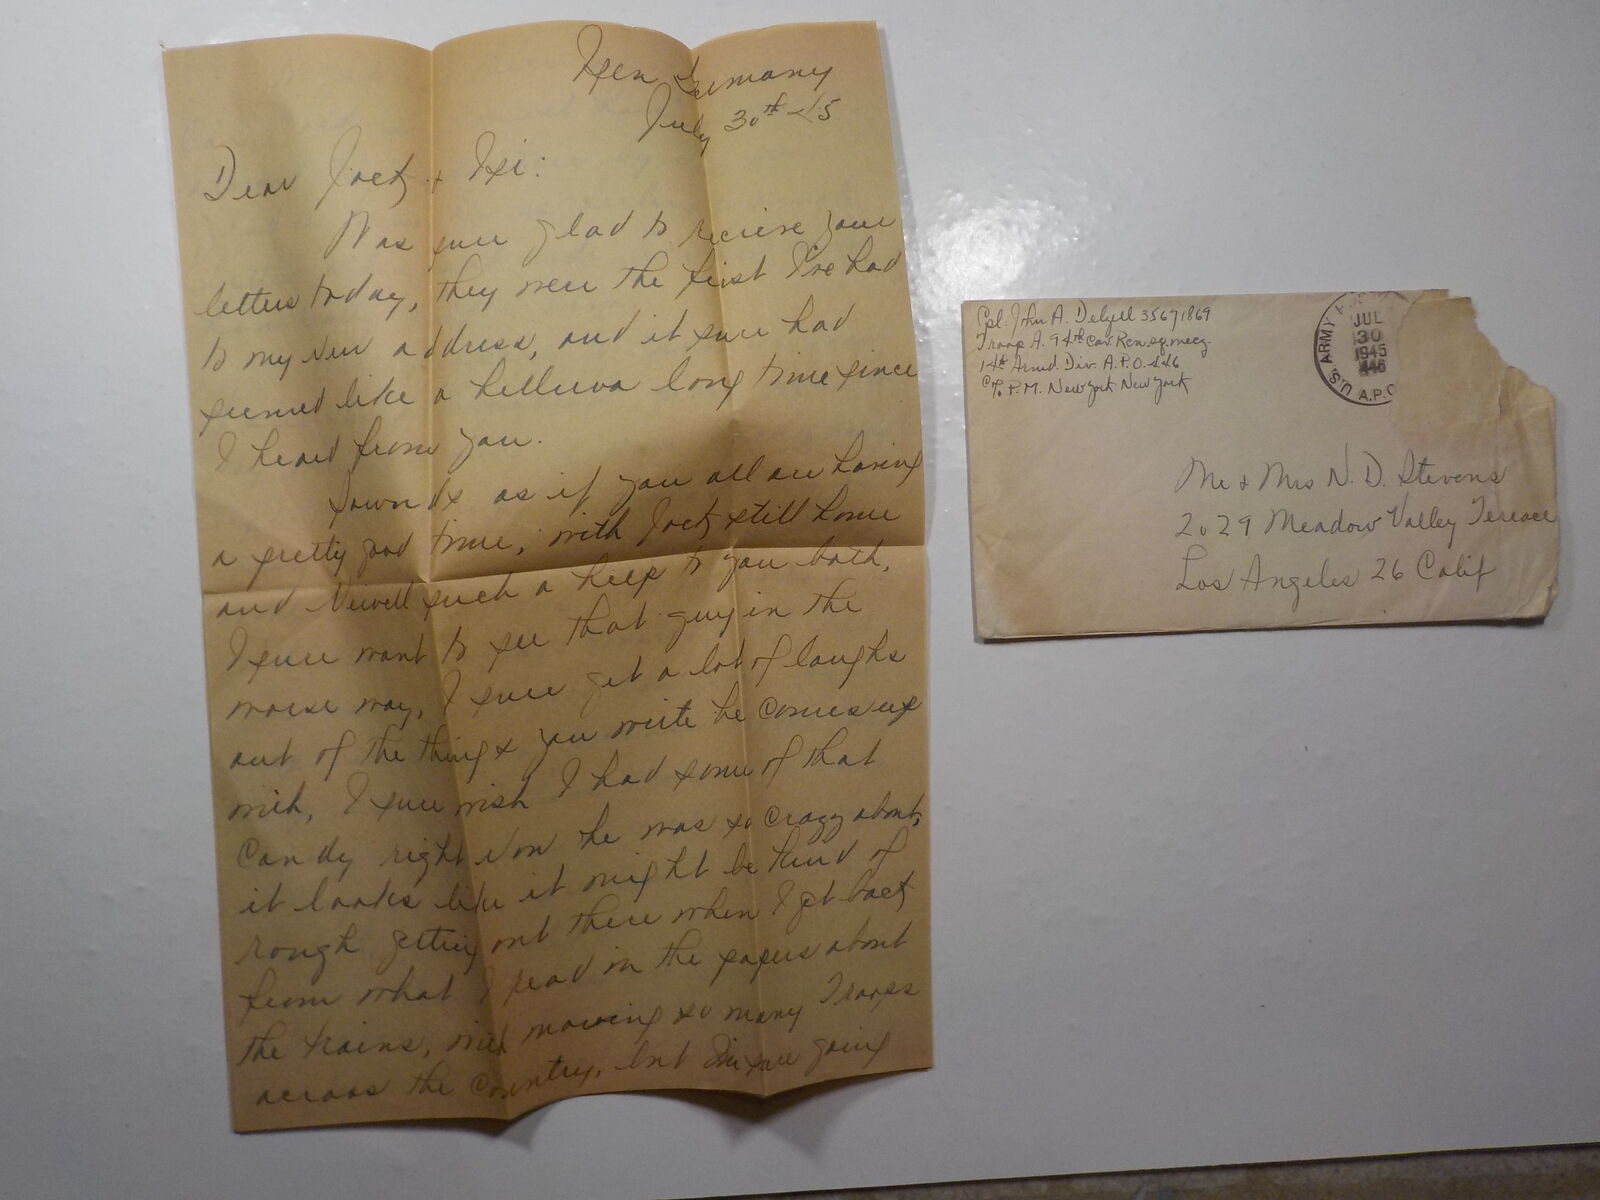 Isen Germany
July 30th 45
Dear Jack + Isi:
Was sure glad to recieve your
letters today, they were the first I've had
to my new address, and it sure had
seemed like a helluva long time since
I heard from you.
Sounds as if you all are having
a pretty good time, with Jack still home
and Newell such a help to you both,
I sure want to see that guy in the
worse way, I sure get a lot of laughs
out of the things you write he comes up
with, I sure wish I had some of that
candy right now he was so crazy about,
it looks like it might be kind of
rough getting out there when I get back
from what I read in the papers about
the trains, with moving so many Troops
across the country, but I'm sure going
Cpl. John A. Delzell 35671869
Troop A. 94th Cav. Rcn. sq. mecz.
14th Armd. Div. A.P.O. 446
c/o P.M. New York New York
U.S. ARMY
JUL
30
1945
446
A.P.O
Mr + Mrs N. D. Stevens
2029 Meadow Valley Terrace
Los Angeles 26 Calif